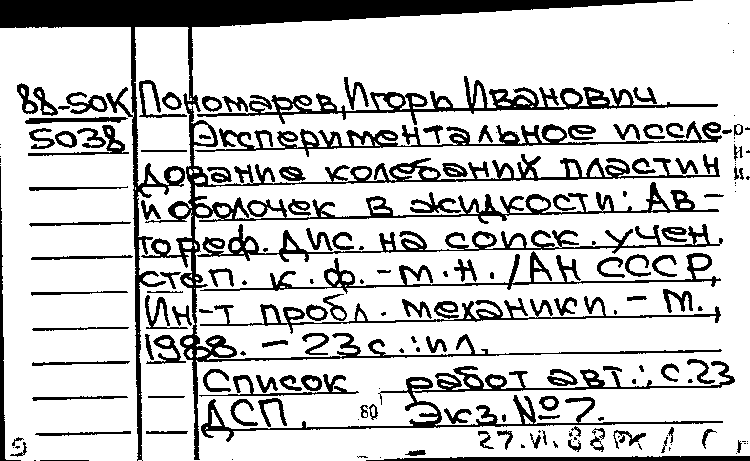 88-50К Пономарев, Игорь Иванович.
5038 Экспериментальное иссле-
дование колебаний пластин
и оболочек в жидкости: Ав-
тореф. дис. на соиск. учен.
степ. к. ф.-м.н. /АН СССР,
Ин-т пробл. механики. – М.,
1988. – 23 с.: ил.
Список работ авт.: с.23
ДСП. 80 Экз. №7.
27.VI.88